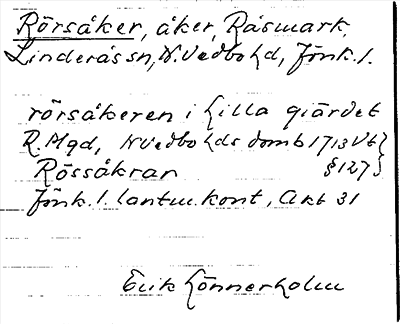 Rörsåker, åker, Råsmark,
Linderås sn, N. Vedbo hd, Jönk. l.
rörsåkeren i Lilla giärdet
R. Mgd, N Vedbo hds domb 1713 Vt}
Rössåkran §127}
Jönk. l. lantm. kont, Akt 31
Erik Lönnerholm